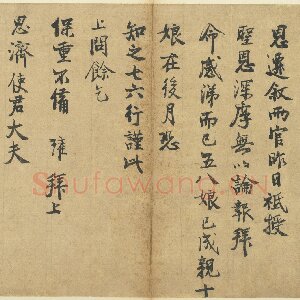 恩遷叙両官昨日祗授
聖恩深厚無以論報拜
命感涕而已五八娘已成親十
娘在後月悉
知之七六行謹此
上聞餘乞
保重不備 瑋拜上
恩濟使君大夫
Shufawang.CN